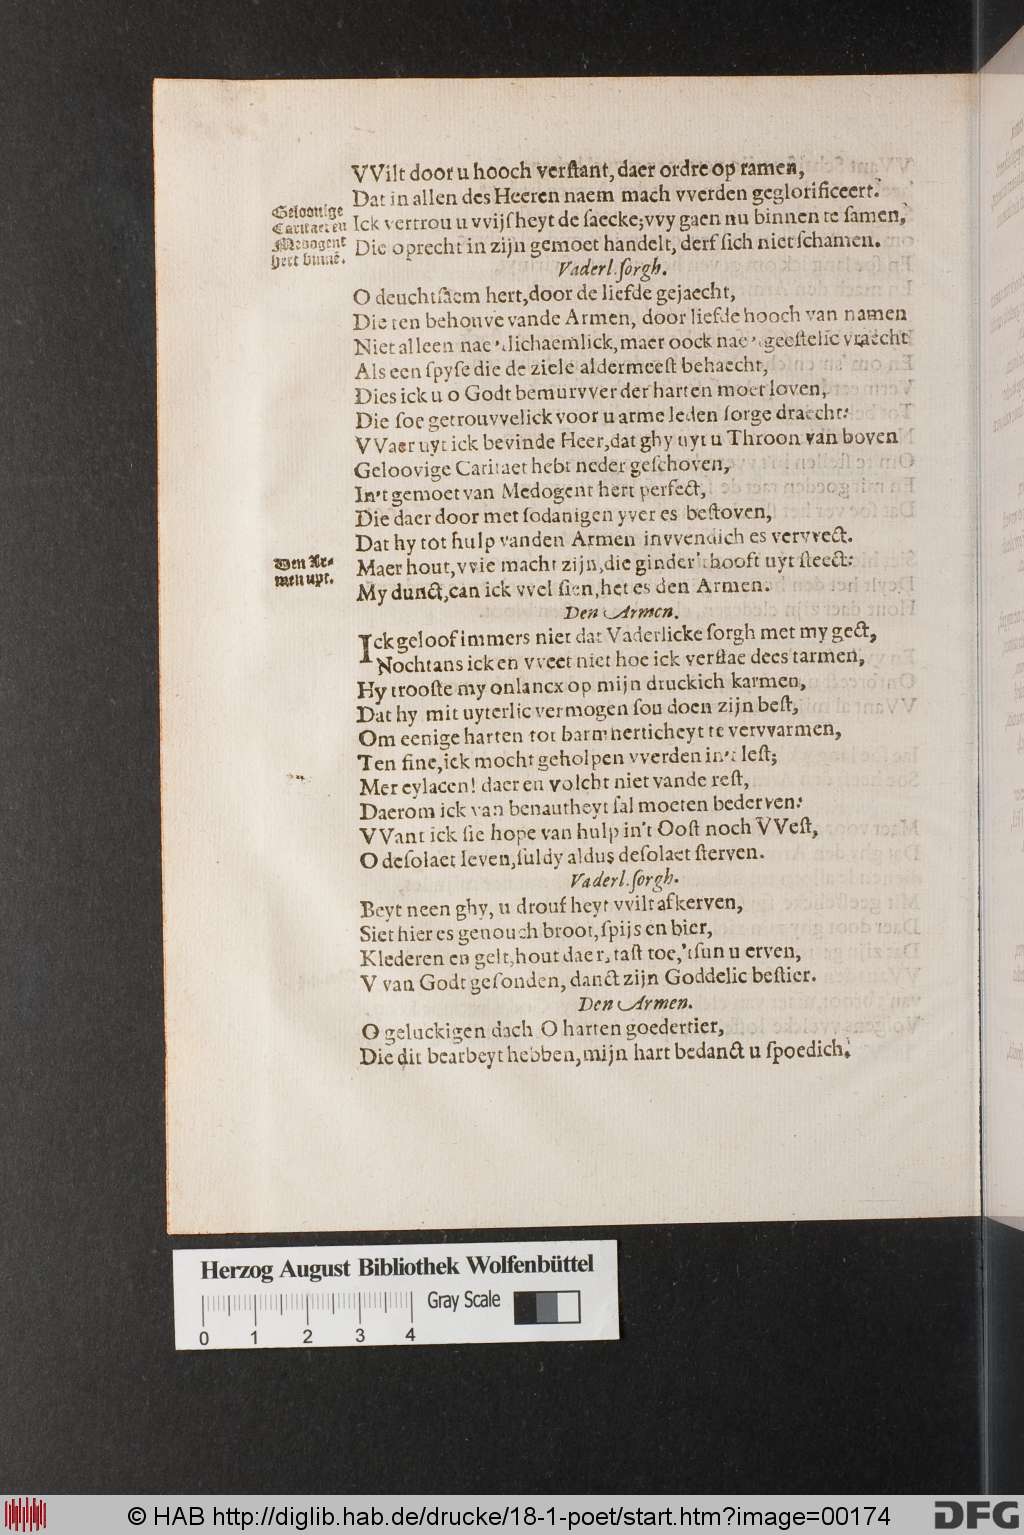 VVilt door u hooch verſtant, daer ordre op ramen,
Dat in allen des Heeren naem mach vverden geglorificeert.
Geloovige
Caritaet en
Medogent
hert binnē.
Ick vertrou u vvijſheyt de ſaecke; vvy gaen nu binnen te ſamen,
Die oprecht in zijn gemoet handelt, derf ſich niet ſchamen.
Vaderl. ſorgh.
O deuchtſaem hert, door de liefde gejaecht,
Die ten behouve vande Armen, door liefde hooch van namen
Niet alleen nae 't lichaemlick, maer oock nae 't geeſtelic vraecht
Als een ſpyſe die de ziele aldermeeſt behaecht,
Dies ick u o Godt bemurvver der harten moet loven,
Die ſoe getrouvvelick voor u arme leden ſorge draecht:
VVaer uyt ick bevinde Heer, dat ghy uyt u Throon van boven
Geloovige Caritaet hebt neder geſchoven,
In't gemoet van Medogent hert perfect,
Die daer door met ſodanigen yver es beſtoven,
Dat hy tot hulp vanden Armen invvendich es vervvect.
Den Ar-
men uyt.
Maer hout, vvie macht zijn, die ginder 't hooft uyt ſteect:
My dunct, can ick vvel ſien, het es den Armen.
Den Armen.
Ick geloof immers niet dat Vaderlicke ſorgh met my gect,
Nochtans ick en vveet niet hoe ick verſtae dees tarmen,
Hy trooſte my onlancx op mijn druckich karmen,
Dat hy mit uyterlic vermogen ſou doen zijn beſt,
Om eenige harten tot barmherticheyt te vervvarmen,
Ten fine, ick mocht geholpen vverden in't leſt;
Mer eylacen! daer en volcht niet vande reſt,
Daerom ick van benautheyt ſal moeten bederven:
VVant ick ſie hope van hulp in't Ooſt noch VVeſt,
O deſolaet leven, ſuldy aldus deſolaet ſterven.
Vaderl. ſorgh.
Beyt neen ghy, u droufheyt vvilt afkerven,
Siet hier es genouch broot, ſpijs en bier,
Klederen en gelt, hout daer, taſt toe, 'tſun u erven,
V van Godt geſonden, danct zijn Goddelic beſtier.
Den Armen.
O geluckigen dach O harten goedertier,
Die dit bearbeyt hebben, mijn hart bedanct u ſpoedich,
Herzog August Bibliothek Wolfenbüttel
Gray Scale
0 1 2 3 4
© HAB http://diglib.hab.de/drucke/18-1-poet/start.htm?image=00174
DFG